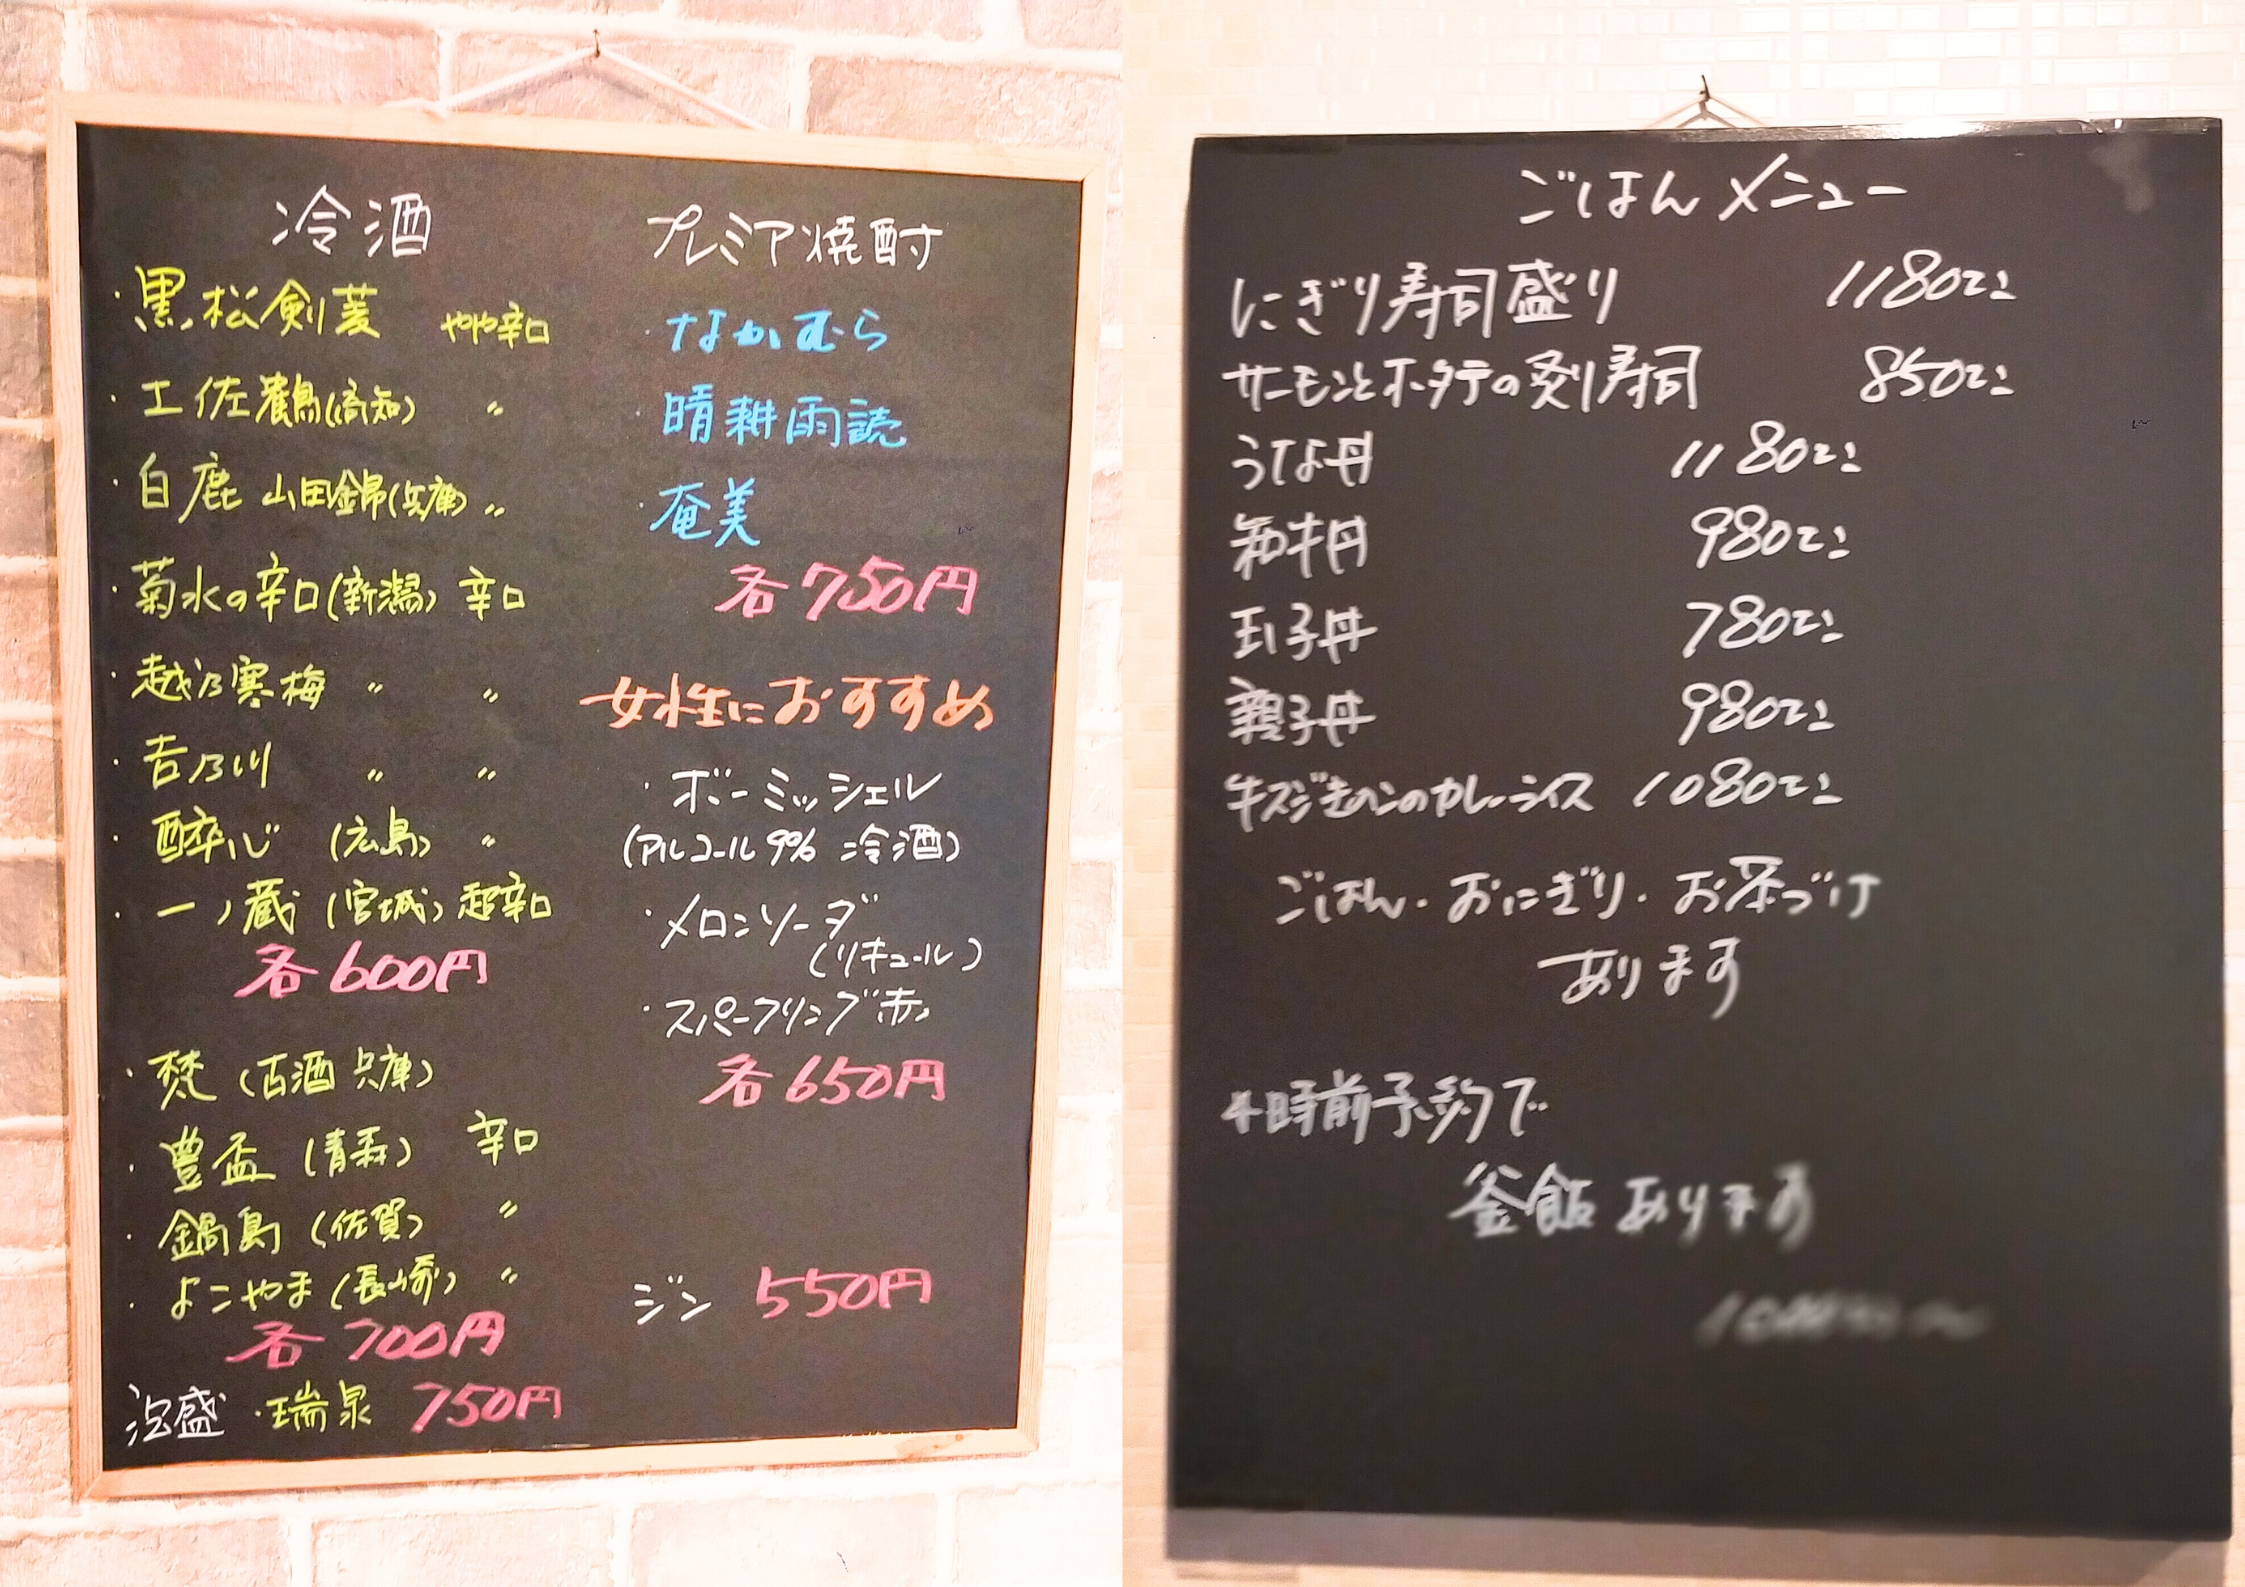 冷酒
・黒松剣菱 やや辛口
・土佐鶴(高知) 〃
・白鹿 山田錦(兵庫) 〃
・菊水の辛口(新潟) 辛口
・越乃寒梅 〃 〃
・吉乃川 〃 〃
・酔心 (広島) 〃
・一ノ蔵 (宮城) 超辛口
各600円
・梵 (古酒 兵庫)
・豊盃 (青森) 辛口
・鍋島 (佐賀) 〃
・よこやま (長崎) 〃
各700円
泡盛 ・瑞泉 750円
プレミア焼酎
・なかむら
・晴耕雨読
・奄美
各750円
女性におすすめ
・ボーミッシェル
(アルコール9% 冷酒)
・メロンソーダ
(リキュール)
・スパークリング赤
各650円
ジン 550円
ごはんメニュー
にぎり寿司盛り 1180
サーモンとホタテの炙り寿司 850
うな丼 1180
980
玉子丼 780
親子丼 980
牛スジ のカレーライス 1080
ごはん・おにぎり・お茶づけ
あります
4時前予約で
釜飯あります